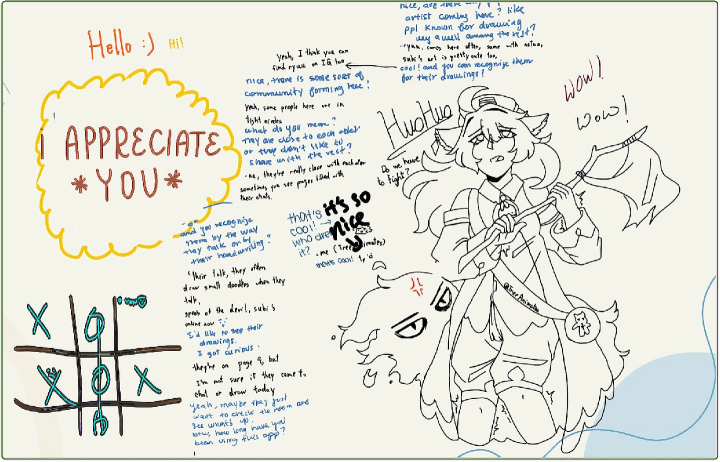 Hello :) Hi!
I APPRECIATE
*YOU*
nice, are there any
artist coming here? like
ppl known for drawing
well among the rest?
cool! and you can recognize them
for their drawings?
yeah, I think you can
find ryuu on IG too
nice, there is some sort of
community forming here!
yeah, some people here are in
tight circles
what do you mean?
they are close to each other
or they don't like to
share with the rest?
no, they're really close with each other
sometimes you see pages filled with
their chats.
and you recognize
them by the way
they talk or by
their handwriting?
Their talk, they often
draw small doodles when they
talk,
speak of the devil, subi's
online now
I'd like to see their
drawings.
I got curious.
they're on page 9, but
I'm not sure if they came to
chat or draw today
yeah, maybe they just
want to check the room and
see what's up.
btw, how long have you
been using this app?
that's
cool!
who drew
it?
it's so
nice
me (TreeAnimates)
that's cool! ty :d
HuoHuo
Do we have
to fight?
WOW!
WOW!
@TreeAnimates
X O
X O X